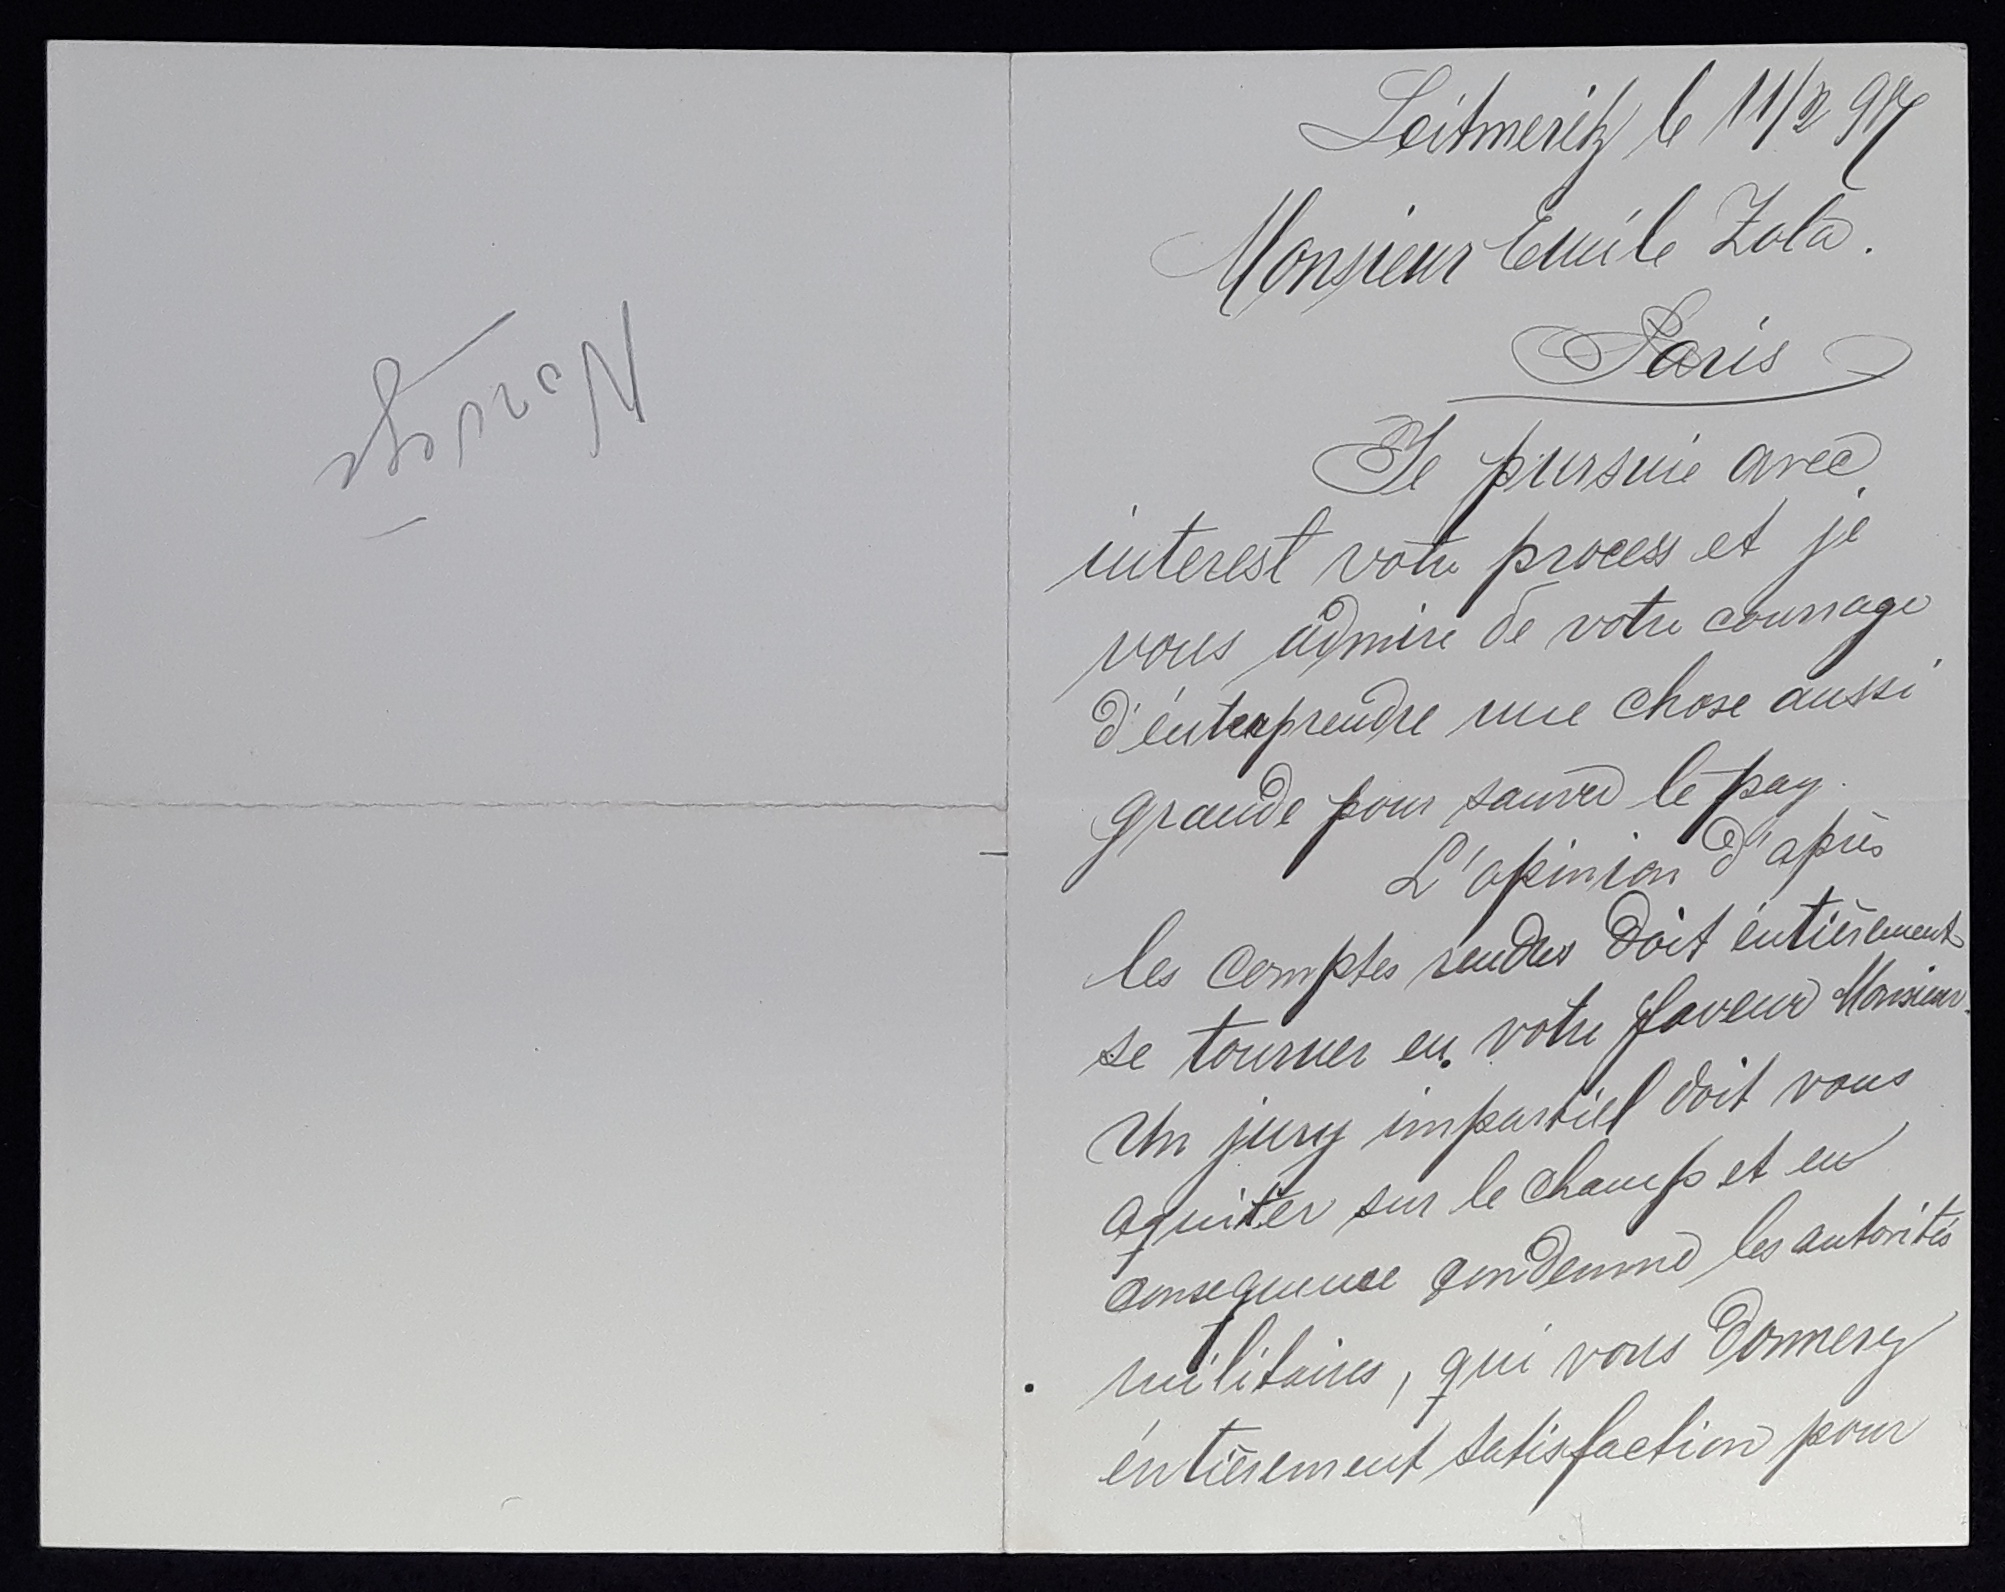 Leitmeritz le 11/2 98
Monsieur Emile Zola.
Paris
Je pursuie avec
interest votre process et je
vous admire de votre courrage
d'énterprendre une chose aussi
grande pour sauver le pay.
L'opinion d'après
les comptes rendus doit éntièrement
se tourner en votre faveur Monsieur.
Un jury impartiel doit vous
aquiter sur le champ et en
consequence condemne les autorités
militaires, qui vous donnerez
éntièrement satisfaction pour